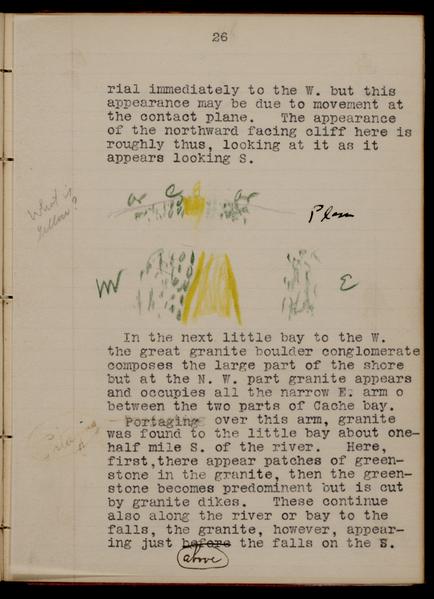 26
rial immediately to the W. but this
appearance may be due to movement at
the contact plane. The appearance
of the northward facing cliff here is
roughly thus, looking at it as it
appears looking S.
What is
yellow?
Plan
W
E
In the next little bay to the W.
the great granite boulder conglomerate
composes the large part of the shore
but at the N. W. part granite appears
and occupies all the narrow E. arm o
between the two parts of Cache bay.
Portaging over this arm, granite
was found to the little bay about one-
half mile S. of the river. Here,
first,there appear patches of green-
stone in the granite, then the green-
stone becomes predominent but is cut
by granite dikes. These continue
also along the river or bay to the
falls, the granite, however, appear-
ing just before the falls on the E.
above